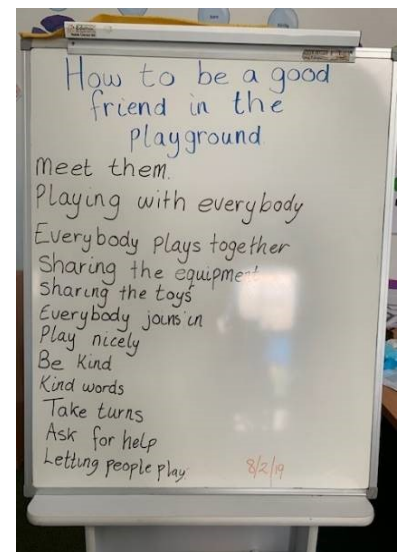 How to be a good
friend in the
Playground
meet them.
Playing with everybody
Everybody plays together
Sharing the equipment
sharing the toys
Everybody joins in
Play nicely
Be Kind
Kind words
Take turns
Ask for help
Letting people play.
8/2/19